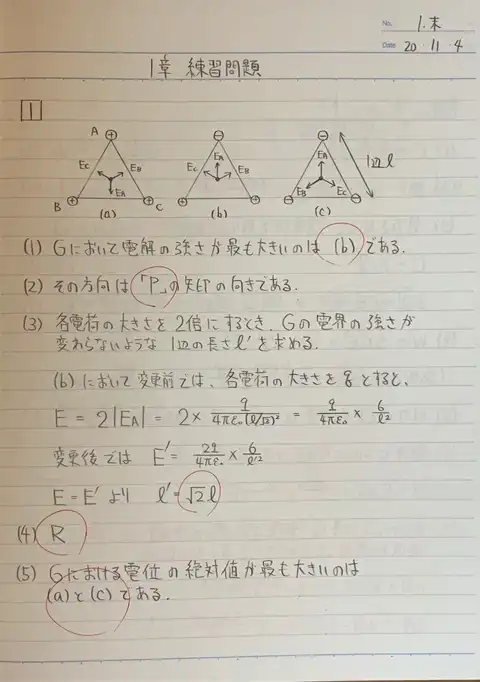 No. 1.末
Date 20・11・4
1章 練習問題
1
A ⊕ ⊖ ⊖
Ec EB Ec EA EB EA 1辺 l
EA Ec
B ⊕ ⊕ C ⊕ ⊕ ⊖ ⊖
(a) (b) (c)
(1) Gにおいて電解の強さが最も大きいのは (b) である.
(2) その方向は「P」の矢印の向きである.
(3) 各電荷の大きさを2倍にするとき, Gの電界の強さが
変わらないような 1辺の長さl'を求める.
(b) において変更前では、各電荷の大きさをqとすると,
E = 2|EA| = 2× q/4πε₀(l/√3)² = q/4πε₀ × 6/l²
変更後では E' = 2q/4πε₀ × 6/l'²
E = E' より l' = √2 l
(4) R
(5) Gにおける電位の絶対値が最も大きいのは
(a)と(c)である.